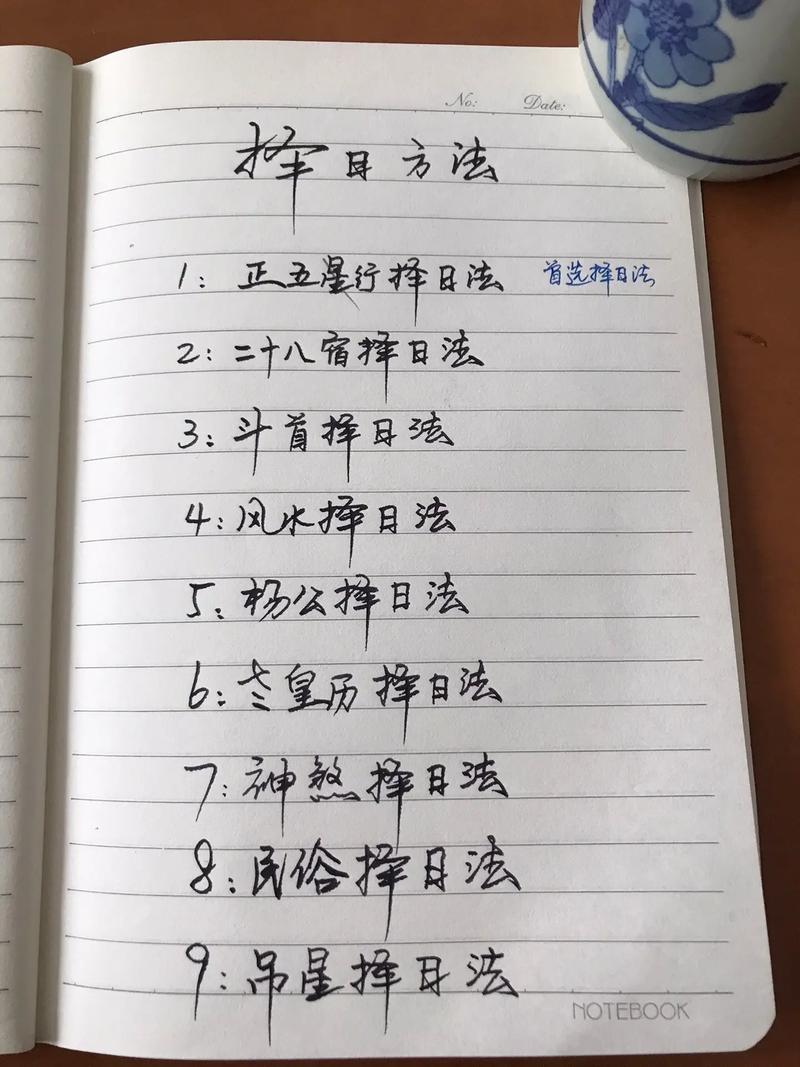 No:    Date:
择日方法
1: 正五星行择日法 首选择日法
2: 二十八宿择日法
3: 斗首择日法
4: 风水择日法
5: 杨公择日法
6: 老皇历择日法
7: 神煞择日法
8: 民俗择日法
9: 吊星择日法
NOTEBOOK